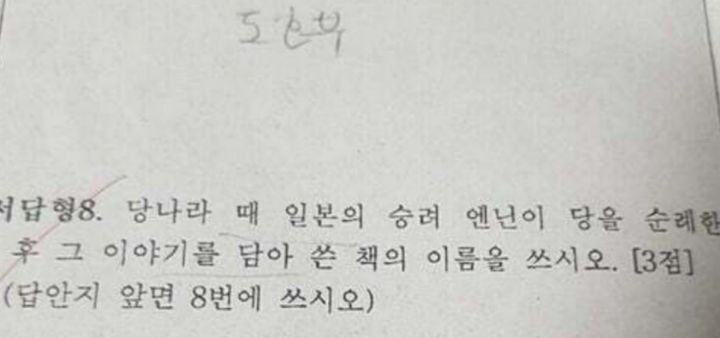 서답형8. 당나라 때 일본의 승려 엔닌이 당을 순례한
후 그 이야기를 담아 쓴 책의 이름을 쓰시오. [3점]
(답안지 앞면 8번에 쓰시오)